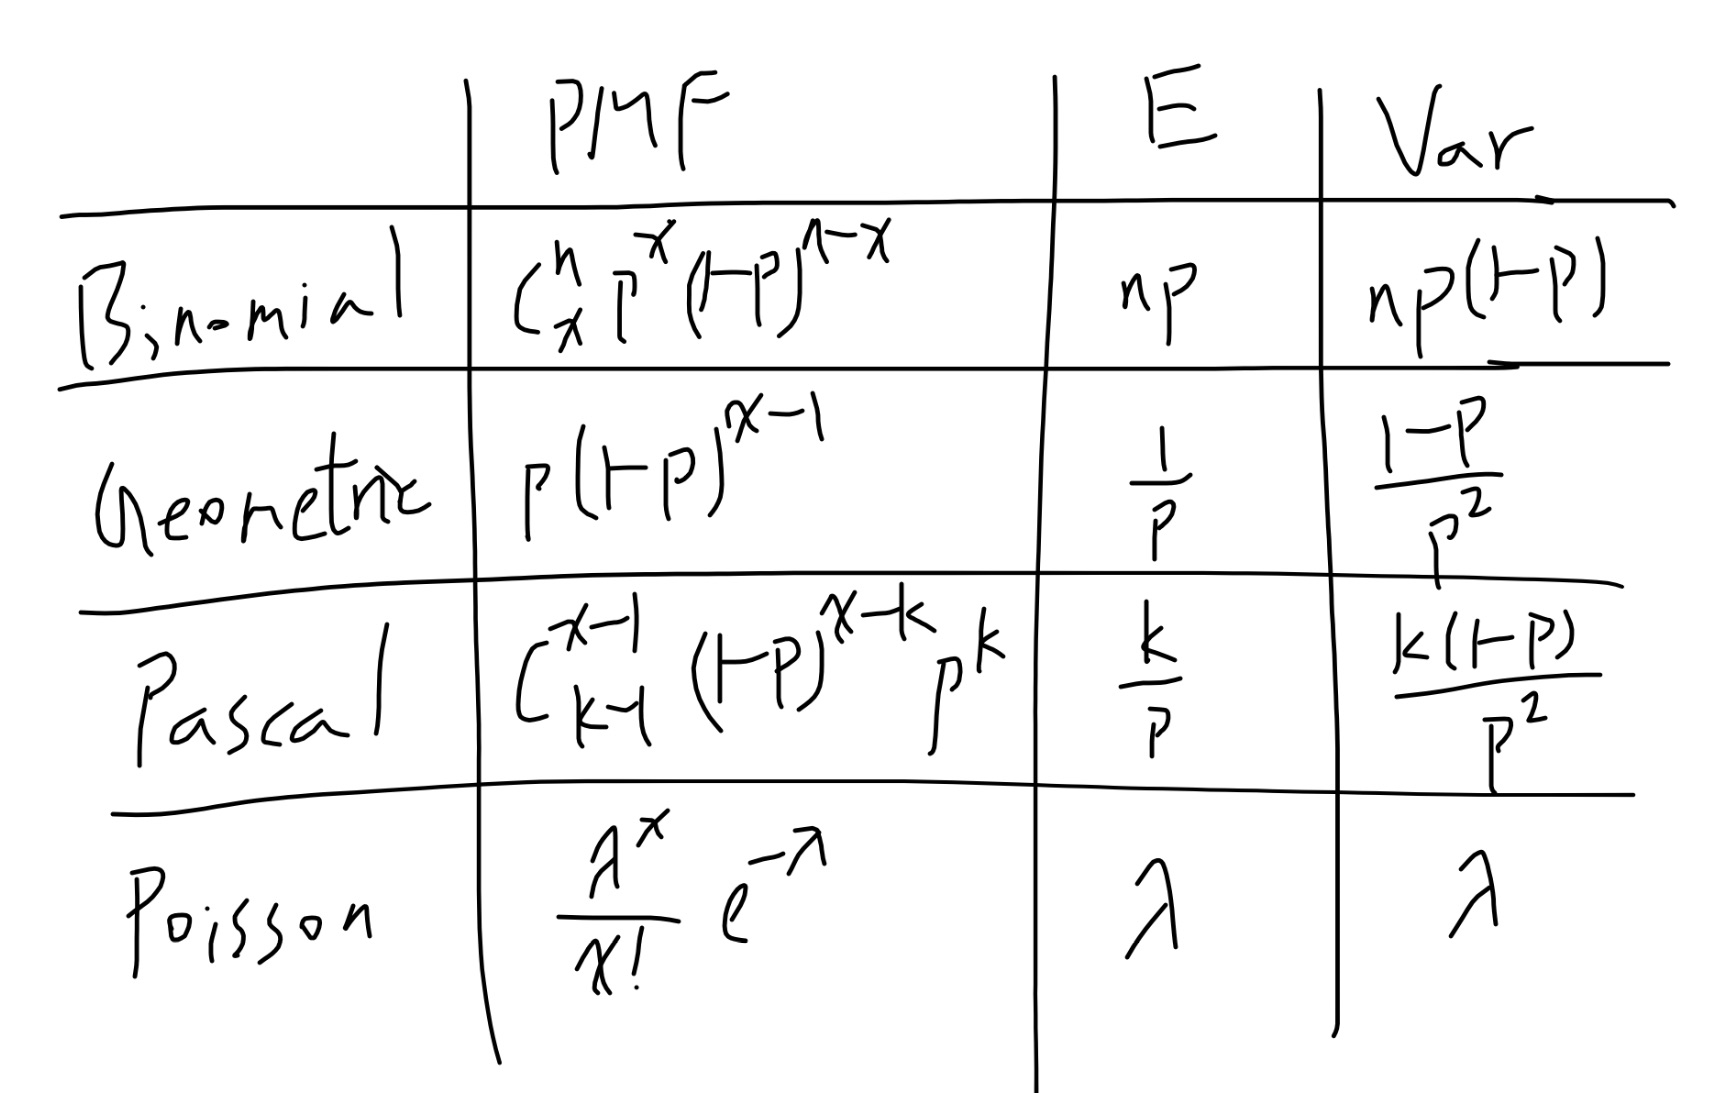 PMF E Var
Binomial C^n_x p^x (1-p)^{n-x} np np(1-p)
Geometric p(1-p)^{x-1} \frac{1}{p} \frac{1-p}{p^2}
Pascal C^{x-1}_{k-1} (1-p)^{x-k} p^k \frac{k}{p} \frac{k(1-p)}{p^2}
Poisson \frac{λ^x}{x!} e^{-λ} λ λ